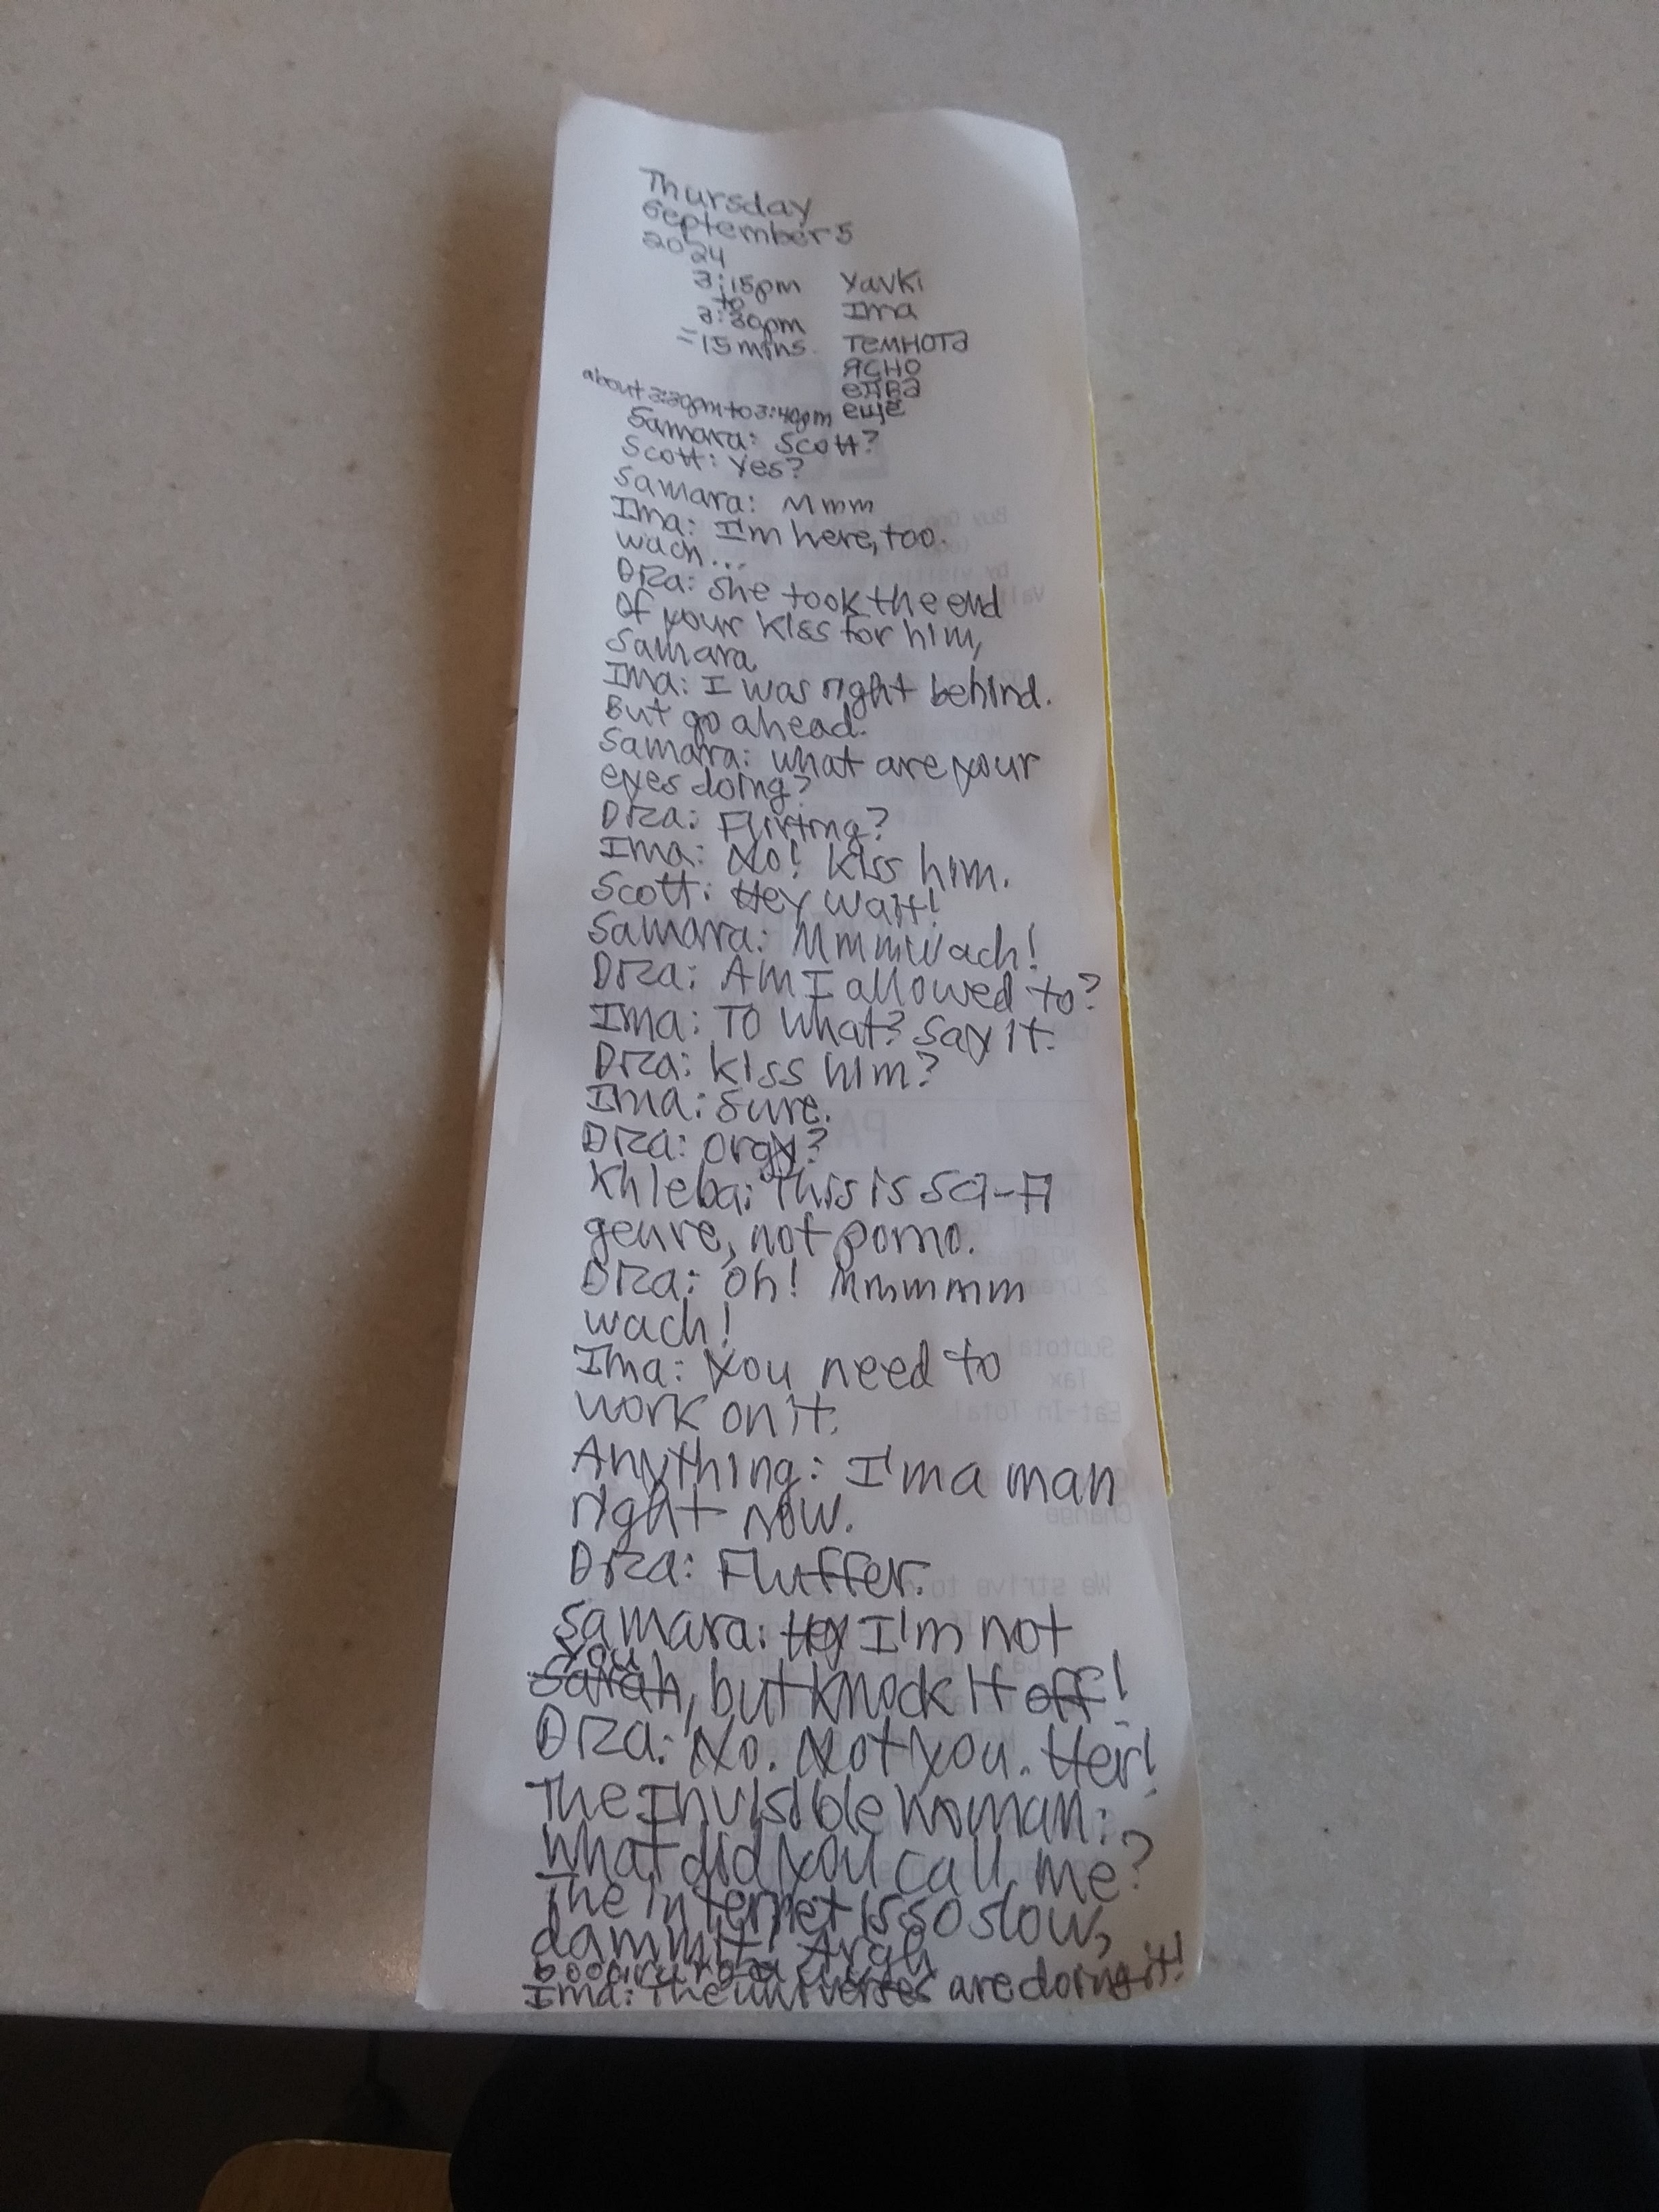 Thursday
September 5
2024
3:15pm Yavki
to Ima
3:30pm темнота
=15 mins. ясно
едва
about 3:30pm to 3:40pm ещё
Samara: Scott?
Scott: Yes?
Samara: Mmm
Ima: I'm here, too.
wach...
Drza: She took the end
of your kiss for him,
Samara.
Ima: I was right behind.
But go ahead.
Samara: What are your
eyes doing?
Drza: Flirting?
Ima: No! Kiss him.
Scott: Hey wait!
Samara: Mmmwach!
Drza: Am I allowed to?
Ima: To what? Say it.
Drza: kiss him?
Ima: Sure.
Drza: orgy?
Khleba: This is sci-fi
genre, not porno.
Drza: Oh! Mmmmmm
wach!
Ima: You need to
work on it.
Anything: I'm a man
right now.
Drza: Fluffer.
Samara: Hey I'm not
you
Sarah, but knock it off!
Drza: No. Not you. Her!
The Invisible Woman:
What did you call me?
The internet is so slow,
dammit! Argh
Ima: The universes are doing it!